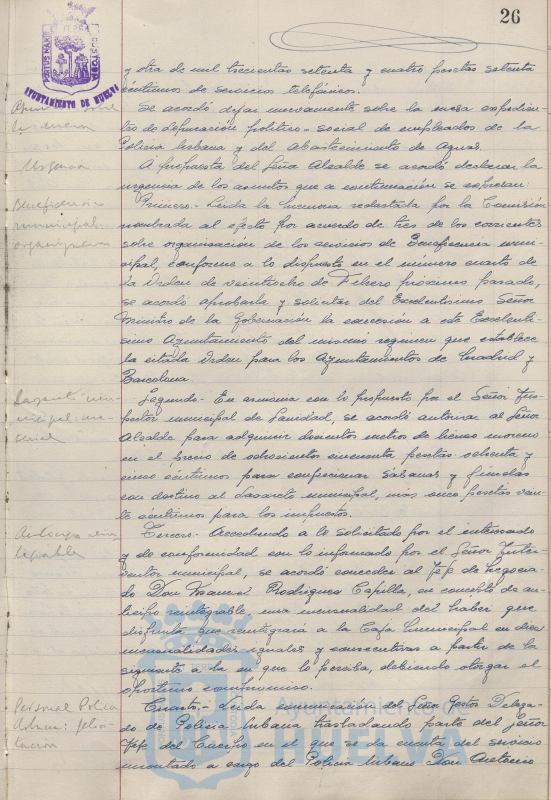 26
PORTUS MARIS ET TERRE CUSTODIA
AYUNTAMIENTO DE HUELVA
y otra de mil trescientas setenta y cuatro pesetas setenta
céntimos de servicios telefónicos.
Se acordó dejar nuevamente sobre la mesa expedien-
tes de depuración político-social de empleados de la
Policía Urbana y del Abastecimiento de Aguas.
Urgencia
A propuesta del Señor Alcalde se acordó declarar la
urgencia de los asuntos que a continuación se expresan:
Beneficencia
municipal:
organización
Primero.- Leída la memoria redactada por la Comisión
nombrada al efecto por acuerdo de tres de los corrientes
sobre organización de los servicios de Beneficencia muni-
cipal, conforme a lo dispuesto en el número cuarto de
la Orden de veintiocho de Febrero próximo pasado,
se acordó aprobarla y solicitar del Excelentísimo Señor
Ministro de la Gobernación la concesión a este Excelentí-
simo Ayuntamiento del mismo régimen que establece
la citada Orden para los Ayuntamientos de Madrid y
Barcelona.
Segundo.- En armonía con lo propuesto por el Señor Ins-
pector municipal de Sanidad, se acordó autorizar al Señor
Alcalde para adquirir doscientos metros de lienzo moreno
en el precio de ochocientas cincuenta pesetas ochenta y
cinco céntimos para confeccionar sábanas y fundas
con destino al municipal, más once pesetas vein-
te céntimos para los impuestos.
Anticipo rein-
tegrable
Tercero.- Accediendo a lo solicitado por el interesado
y de conformidad con lo informado por el Señor Inter-
ventor municipal, se acordó conceder al Jefe de Negocia-
do Don Rodríguez Capilla, en concepto de an-
ticipo reintegrable, una mensualidad del haber que
disfruta que reintegrará a la Caja municipal en diez
mensualidades iguales y consecutivas a partir de la
siguiente a la en que lo perciba, debiendo otorgar el
oportuno compromiso.
Personal Policía
Urbana: felici-
tación
Cuarto.- Leída comunicación del Señor Gestor Delega-
do de Policía Urbana trasladando parte del Señor
Jefe del Cuerpo en el que se da cuenta del servicio
encomendado a cargo del Policía Urbano Don Antonio
Ayuntamiento de
HUELVA